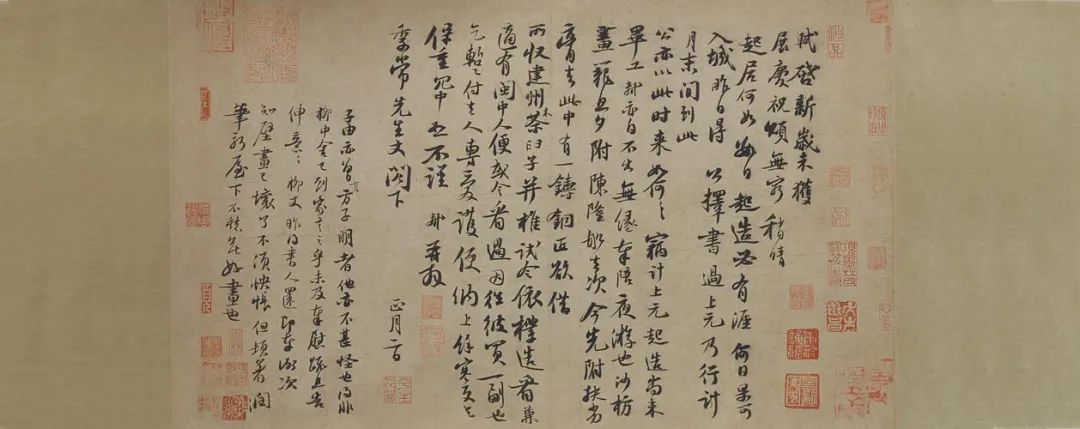 軾啓新歲未獲
展慶祝頌無窮稍晴
起居何如數日起造必有涯何日果可
入城昨日得公擇書過上元乃行計
月末間到此
公亦以此時來如何々竊計上元起造尚未
畢工軾亦自不出無緣奉陪夜遊也沙枋
畫籠旦夕附陳隆船去次今先附扶劣
膏去此中有一鑄銅匠欲借
所收建州木茶臼子并椎試令依樣造看兼
適有閩中人便或令看過因往彼買一副也
乞暫付去人專愛護便納上餘寒更乞
保重冗中恕不謹軾再拜
季常先生丈閣下正月二日
子由亦曾言方子明者他亦不甚怪也得非
柳中舍已到家言之乎未及奉慰疏且告
伸意々柳丈昨得書人還即奉謝次
知壁畫已壞了不須怏悵但頓著潤
筆新屋下不愁無好畫也